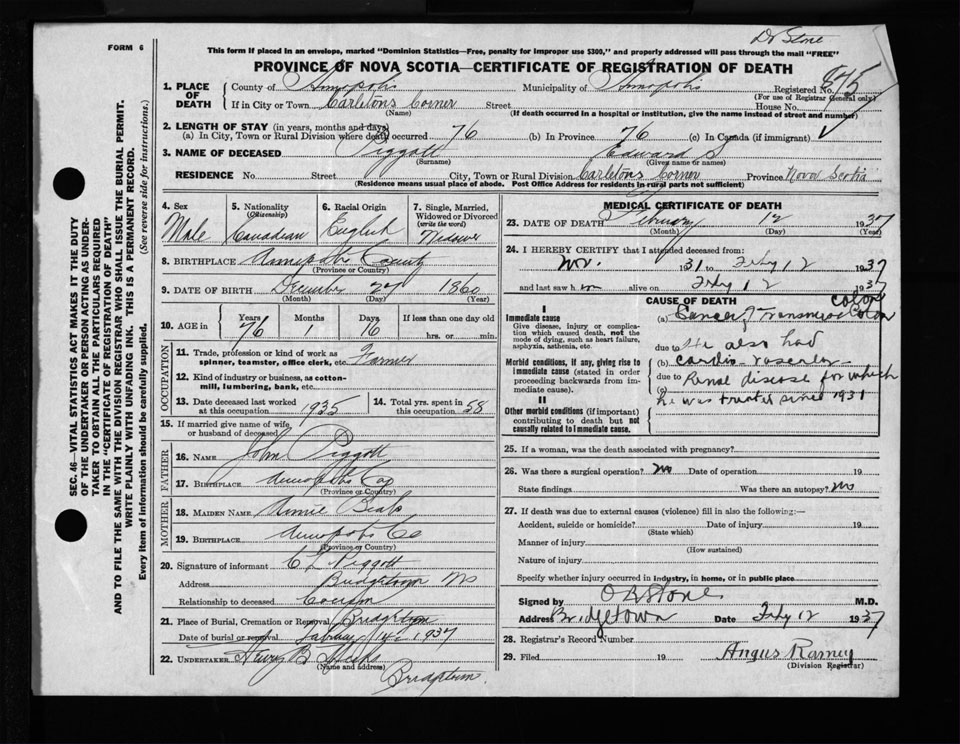 FORM 6
Dr Stone
This form if placed in an envelope, marked "Dominion Statistics—Free, penalty for improper use $300," and properly addressed will pass through the mail "FREE"
PROVINCE OF NOVA SCOTIA—CERTIFICATE OF REGISTRATION OF DEATH
SEC. 46—VITAL STATISTICS ACT MAKES IT THE DUTY
OF THE UNDERTAKER OR PERSON ACTING AS UNDER-
TAKER TO OBTAIN ALL THE PARTICULARS REQUIRED
IN THE "CERTIFICATE OF REGISTRATION OF DEATH"
AND TO FILE THE SAME WITH THE DIVISION REGISTRAR WHO SHALL ISSUE THE BURIAL PERMIT.
WRITE PLAINLY WITH UNFADING INK. THIS IS A PERMANENT RECORD.
Every item of Information should be carefully supplied. (See reverse side for instructions.)
1. PLACE OF DEATH County of Annapolis Municipality of Annapolis Registered No. 875
(For use of Registrar General only)
If in City or Town Carletons Corner Street House No.
(Name) (If death occurred in a hospital or institution, give the name instead of street and number)
2. LENGTH OF STAY (in years, months and days)
(a) In City, Town or Rural Division where death occurred 76 (b) In Province 76 (c) In Canada (if immigrant)
3. NAME OF DECEASED Piggott Edward S
(Surname) (Given name or names)
RESIDENCE No. Street City, Town or Rural Division Carletons Corner Province Nova Scotia
(Residence means usual place of abode. Post Office Address for residents in rural parts not sufficient)
4. Sex Male
5. Nationality (Citizenship) Canadian
6. Racial Origin English
7. Single, Married, Widowed or Divorced (write the word) Widower
8. BIRTHPLACE Annapolis County
(Province or Country)
9. DATE OF BIRTH December 27 1860
(Month) (Day) (Year)
10. AGE in Years 76 Months 1 Days 16 If less than one day
hrs. or min.
OCCUPATION
11. Trade, profession or kind of work as spinner, teamster, office clerk, etc. Farmer
12. Kind of industry or business, as cotton-mill, lumbering, bank, etc.
13. Date deceased last worked at this occupation 1935
14. Total yrs. spent in this occupation 58
15. If married give name of wife or husband of deceased
FATHER
16. NAME John Piggott
17. BIRTHPLACE Annapolis Co
(Province or Country)
MOTHER
18. MAIDEN NAME Annie
19. BIRTHPLACE Annapolis Co
(Province or Country)
20. Signature of informant C L Piggott
Address Bridgetown NS
Relationship to deceased Cousin
21. Place of Burial, Cremation or Removal Bridgetown
Date of burial or removal 1937
22. UNDERTAKER B
(Name and address)
Bridgetown
MEDICAL CERTIFICATE OF DEATH
23. DATE OF DEATH February 12 1937
(Month) (Day) (Year)
24. I HEREBY CERTIFY that I attended deceased from:
Nov. 1931 to Feby 12 1937
and last saw him alive on Feby 12 1937
CAUSE OF DEATH
I
Immediate cause
Give disease, injury or complication which caused death, not the mode of dying, such as heart failure, asphyxia, asthenia, etc.
Morbid conditions, if any, giving rise to immediate cause (stated in order proceeding backwards from immediate cause).
II
Other morbid conditions (if important) contributing to death but not causally related to immediate cause.
colon
(a) Cancer of Transverse Colon
due to He also had
(b) Cardio vascular
due to Renal disease for which
(c) he was treated since 1931
25. If a woman, was the death associated with pregnancy?
26. Was there a surgical operation? No Date of operation 19
State findings Was there an autopsy? No
27. If death was due to external causes (violence) fill in also the following:—
Accident, suicide or homicide? Date of injury 19
(State which)
Manner of injury
(How sustained)
Nature of injury
Specify whether injury occurred in industry, in home, or in public place
Signed by Stone M.D.
Address Bridgetown Date Feby 12 1937
28. Registrar's Record Number
29. Filed 19 Angus Ramey
(Division Registrar)